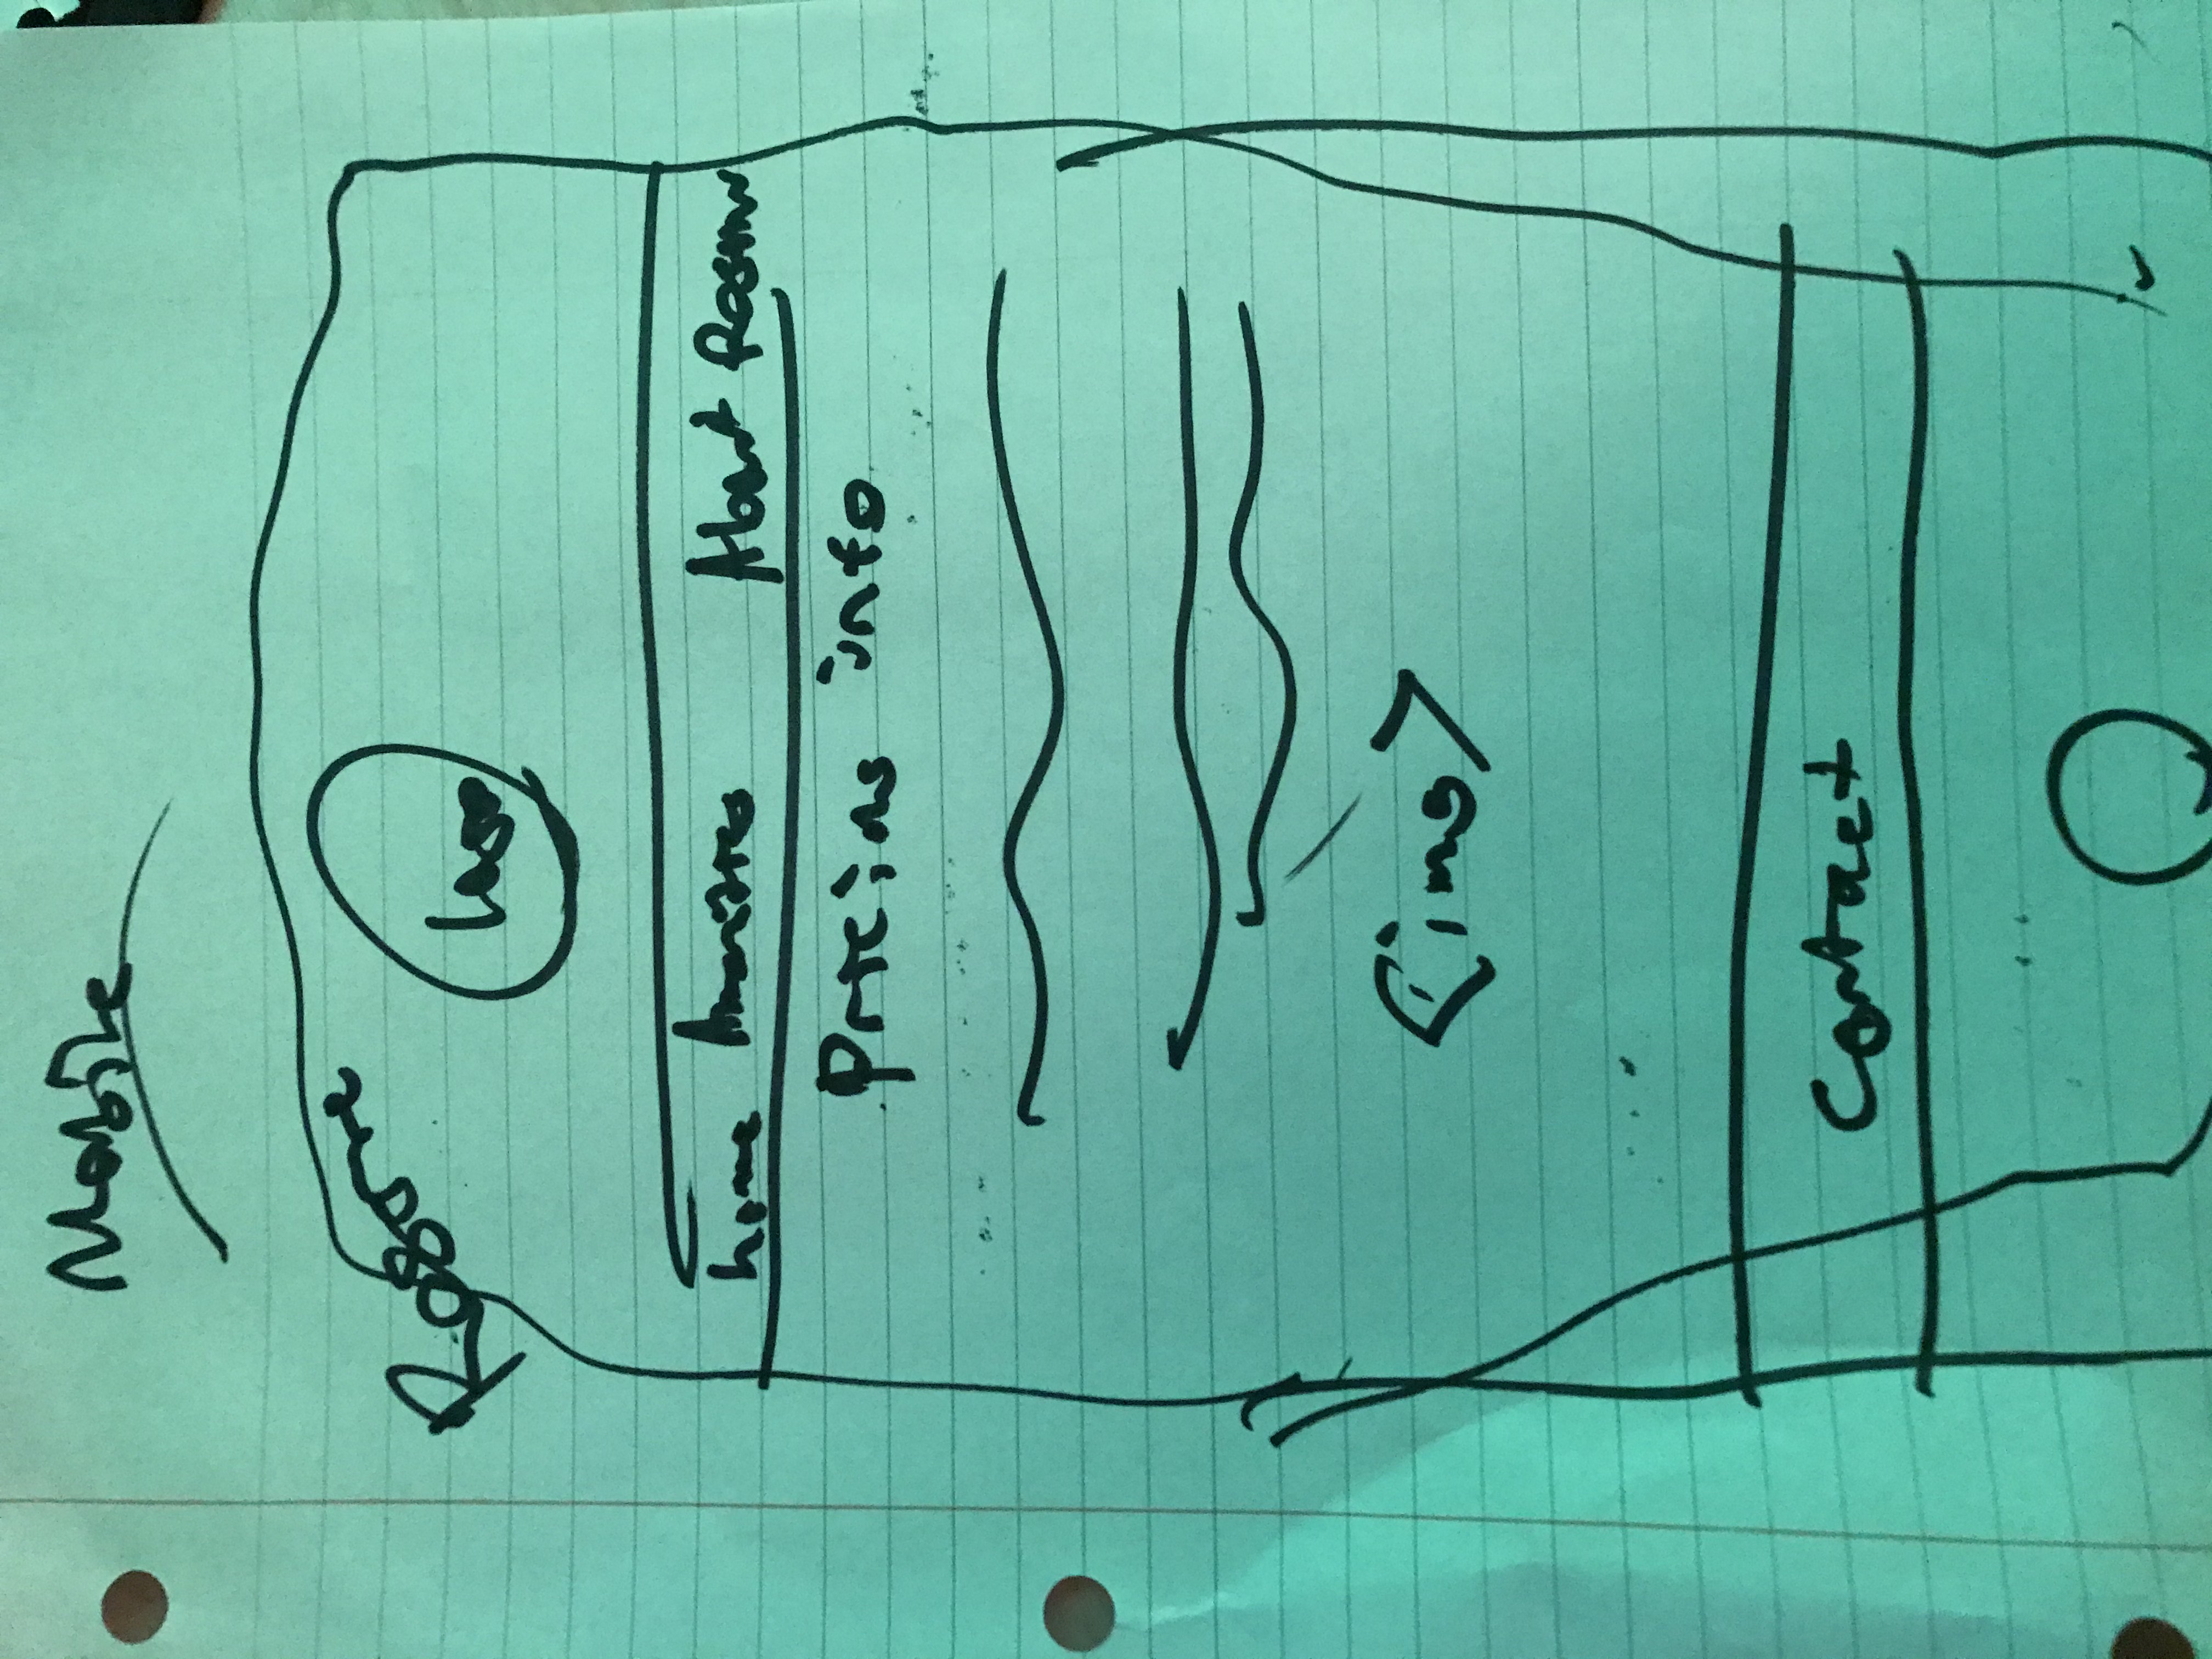 Mobile
Reserve
Logo
home Amenities About Reserve
Pricing info
<img>
Contact